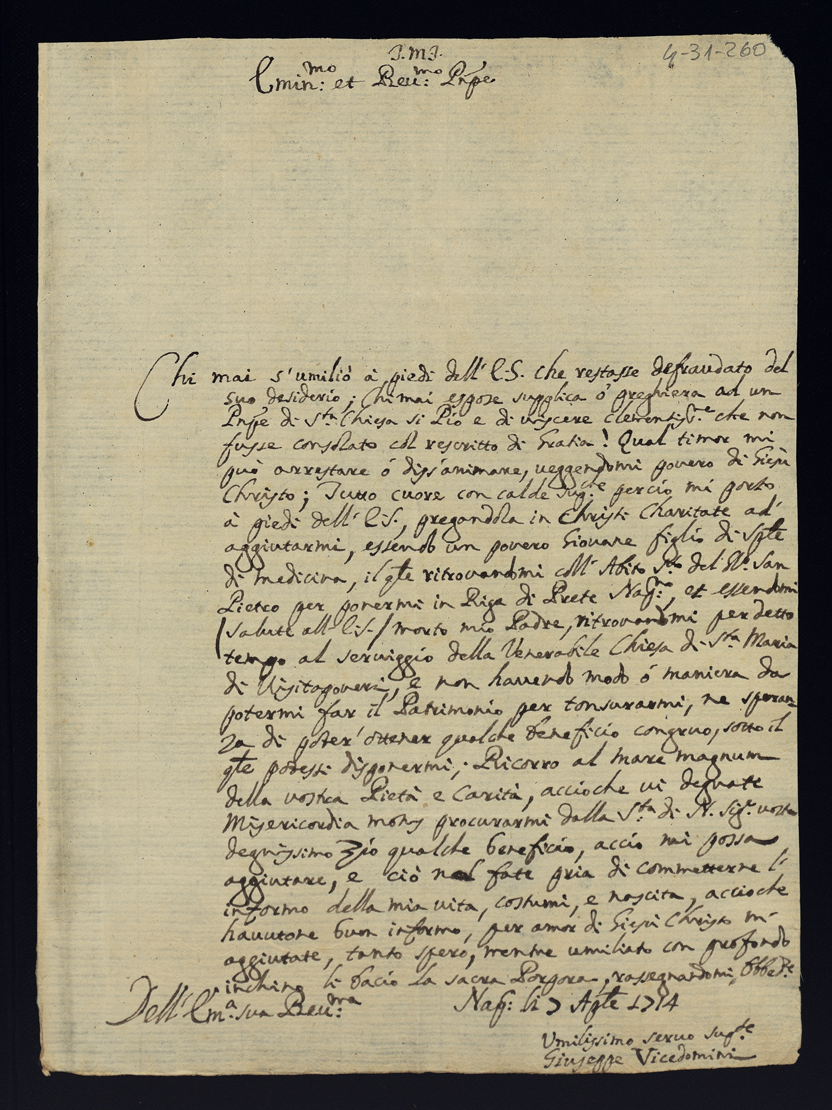 4-31-260
J.M.J.
Emin:mo et Reu:mo Pn̄pe
Chi mai s'umiliò à piedi dell'E.S. che restasse defraudato del
suo desiderio; Chi mai espose supplica ò preghiera ad un
Pn̄pe di S.ta Chiesa si Pio e di viscere clementiss:e che non
fusse consolato col rescritto di Gratia! Qual timor mi
può arrestare ó diss'animare, veggendomi povero di Giesù
Christo; Tutto cuore con calde sup:che perciò mi porto
à piedi dell'E.S., pregandola in Christi Charitate ad
aggiutarmi, essendo un povero Giovane figlio di
di medicina, il qle ritrovandomi coll'Abito S.to del San
Pietro per ponermi in Riga di Prete Nap:no, et essendomi
/salute all'E.S./ morto mio Padre, ritrovandomi per detto
tempo al serviggio della Venerabile Chiesa di S.ta Maria
di Visitapoveri, e non havendo modo ó maniera da
potermi far il Patrimonio per tonsurarmi, ne speran
za di poter'ottener qualche beneficio congruo, sotto il
qle potessi disponermi; Ricorro al mare magnum
della vostra Pietà e Carità, accioche vi degnate
Misericordia procurarmi dalla S.tà di N. Sig.r vostro
degnissimo Zio qualche beneficio, acciò mi possa
aggiutare, e ciò nol fate pria di commetterne l'
informo della mia vita, costumi, e nascita, accioche
havutone buon informo, per amor di Giesù Christo m'
aggiutate, tanto spero, mentre umiliato con profondo
inchino li bacio la sacra Porpora, rassegnandomi
Dell'Em:a sua Reu:ma Nap: li 7 Aple 1714
Umilissimo servo sup:te
Giuseppe Vicedomini